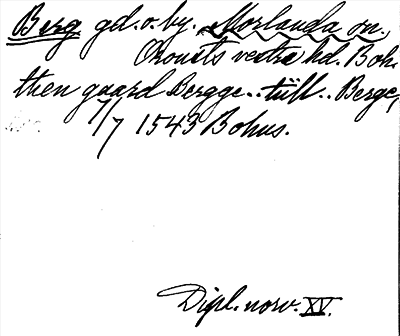 Berg gd. o. by. Morlanda sn.,
Orousts vestra hd. Boh.
then gaard Bergge .. till .. Berge,
7/7 1543 Bohus.
Dipl. norv. XV.